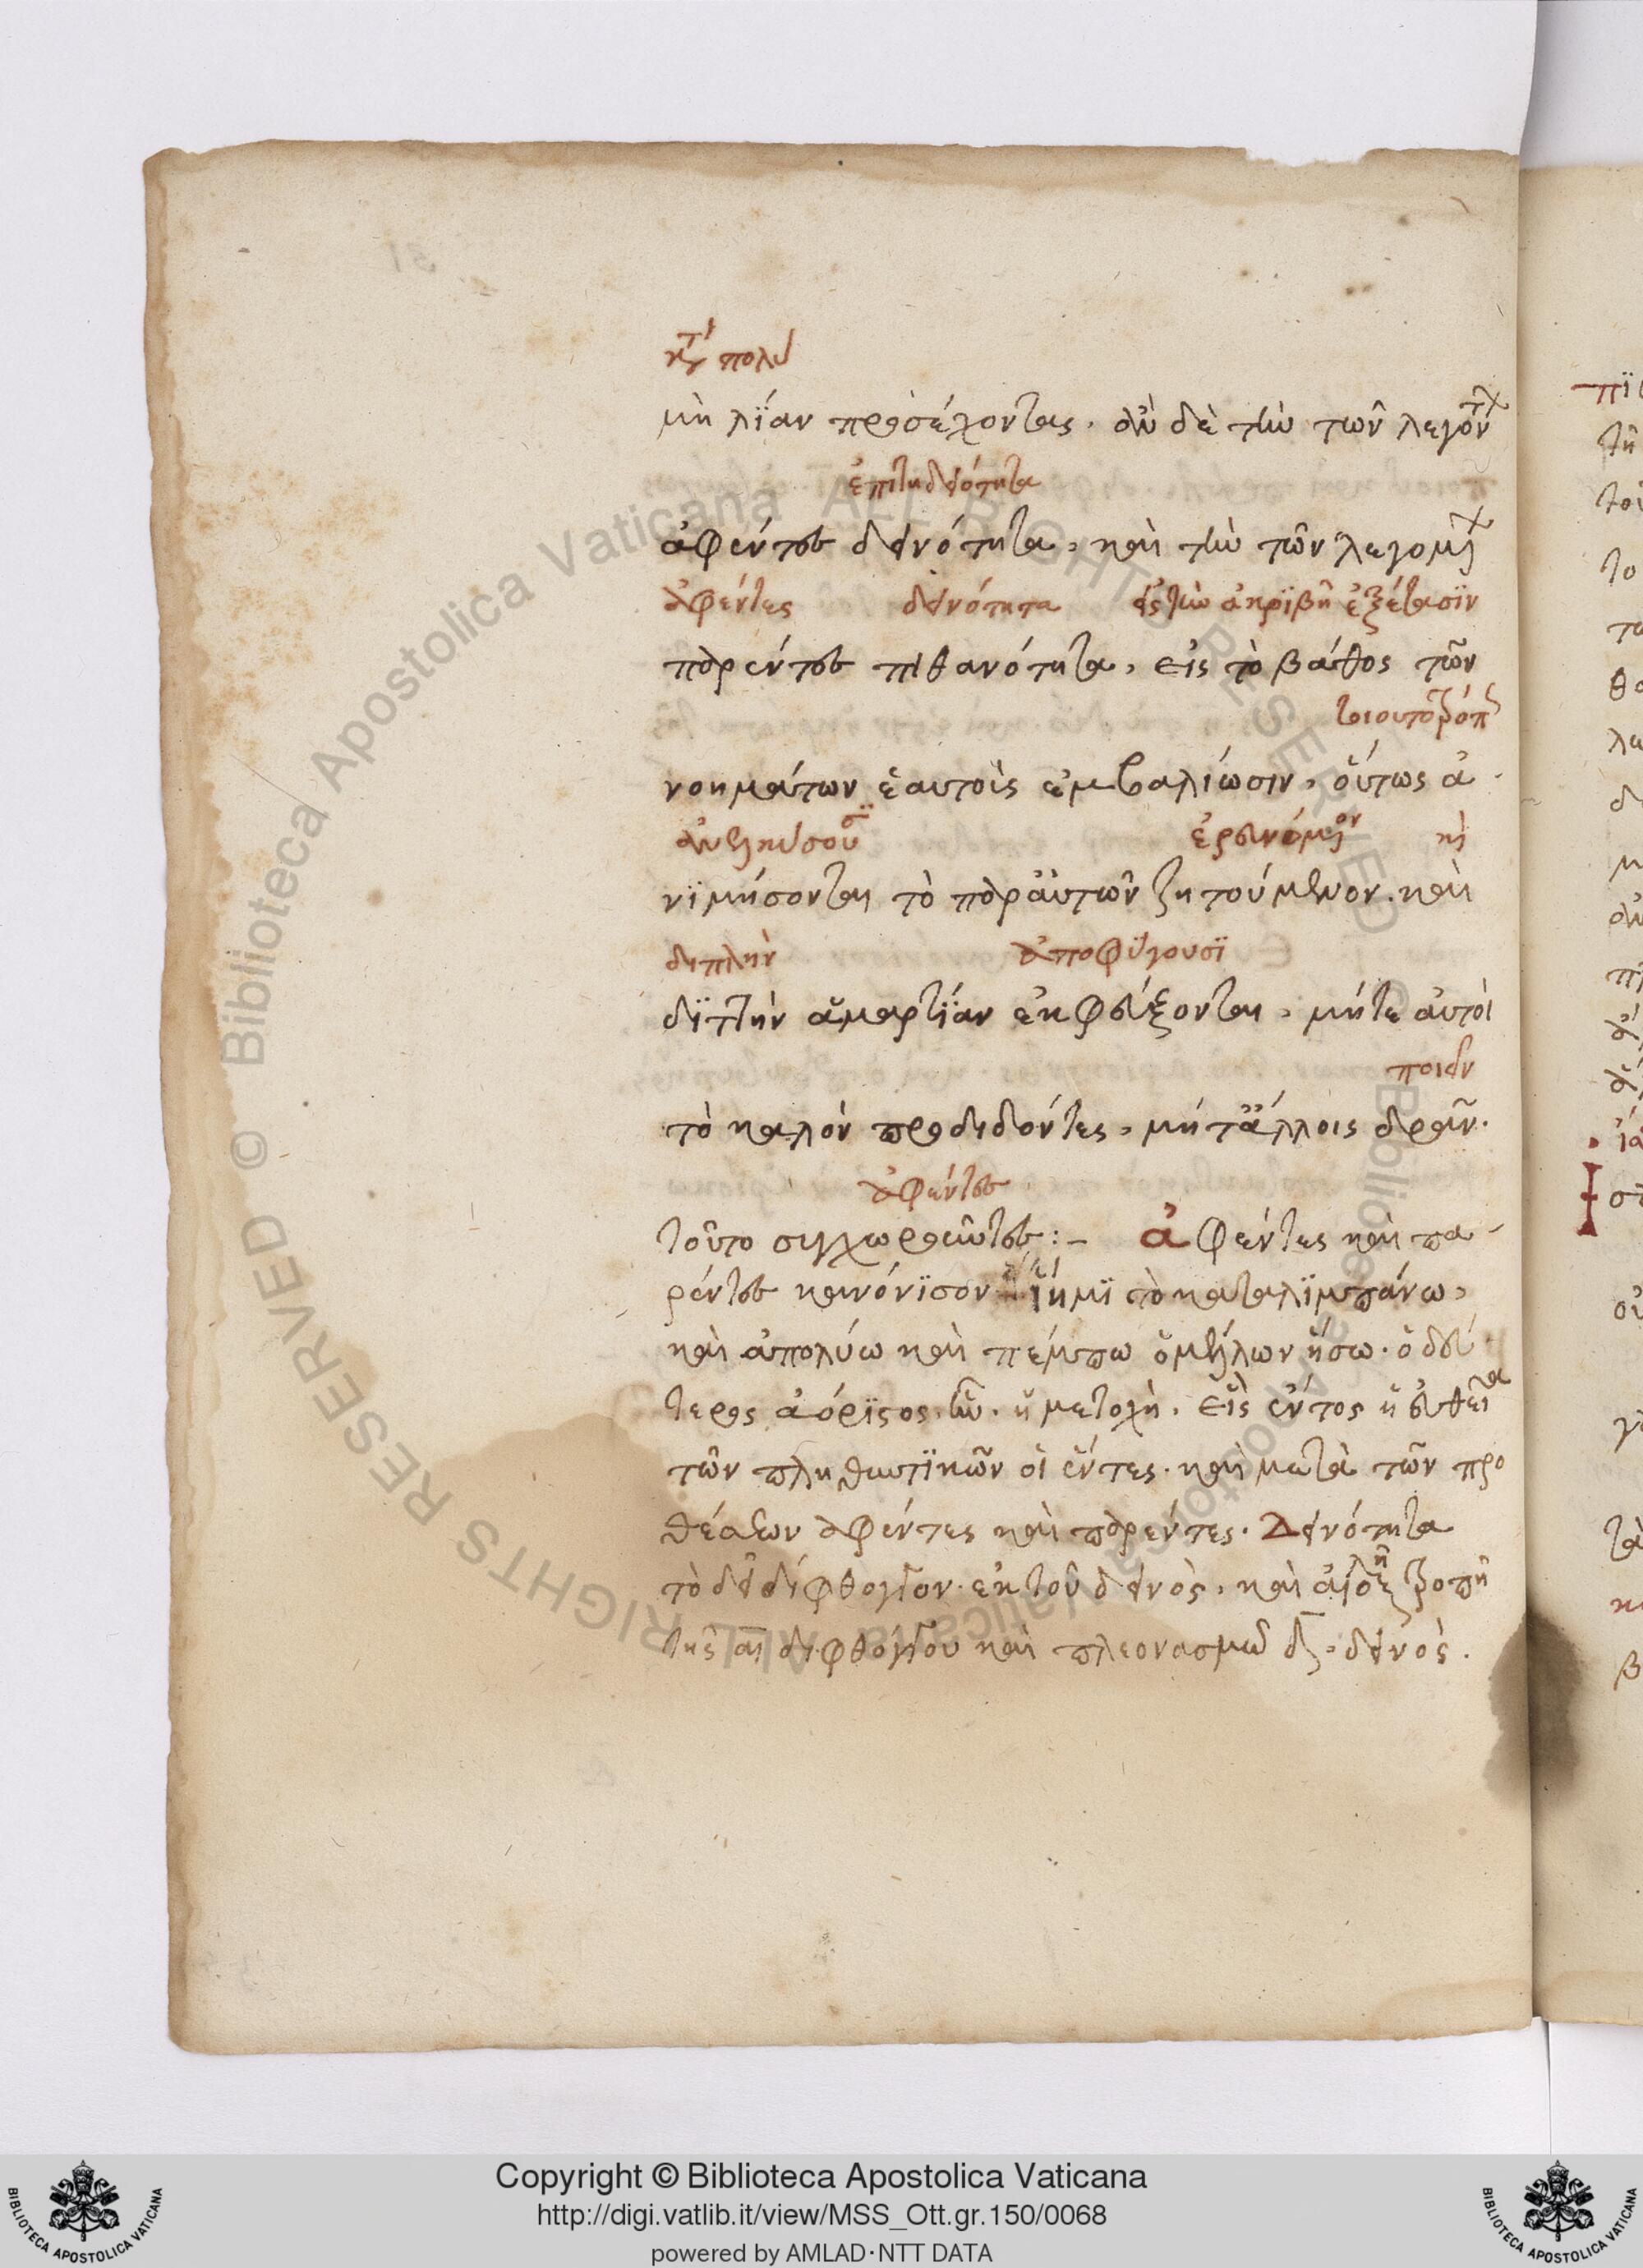 κατὰ πολὺ
μὴ λϊαν προσέχοντας. ἀλλὰ δὲ τὴν τῶν λεγόντων
ἐπιτηδειότητα
ἀφέντες δεινότητα, καὶ τὴν τῶν λεγομένων
ἀφέντες δεινότητα εἰς τὴν ἀκρϊβῆ ἐξέτασϊν
παρέντες πιθανότητα, εἰς τὸ βάθος τῶν
τοιουτοτρόπως
νοημάτων ἑαυτοὺς ἐμβαλέωσιν, οὕτως ἀ
ἐρευνόμενον καὶ
νϊμήσονται τὸ παρ' αὐτῶν ζητούμενον. καὶ
διπλὴν ἀποφύγουσϊ
δϊττὴν ἁμαρτϊαν ἐκφεύξονται, μήτε αὐτοὶ
ποιεῖν
τὸ καλὸν προδιδόντες, μήτ' ἄλλοις δρᾶν.
ἀφέντες
τοῦτο συγχωροῦντες:- ἀφέντες καὶ πα-
ρέντες κανόνϊσον ἵημϊ τὸ καταλϊμπάνω,
καὶ ἀπολύω καὶ πέμπω ὁ μέλλων ἥσω. ὁ δεύ
τερος ἀόρϊστος ἦν. ἡ μετοχὴ. εἷς ἕντος ἡ εὐθεῖα
τῶν πληθυντϊκῶν οἱ ἕντες. καὶ μετὰ τῶν προ
θέσεων ἀφέντες καὶ παρέντες. Δεινότητα
τὸ δει δίφθογγον. ἐκ τοῦ δεινὸς. καὶ τροπῇ
τῆς αι διφθόγγου καὶ πλεονασμῶ δεινὸς.
Copyright © Biblioteca Apostolica Vaticana
http://digi.vatlib.it/view/MSS_Ott.gr.150/0068
powered by AMLAD·NTT DATA